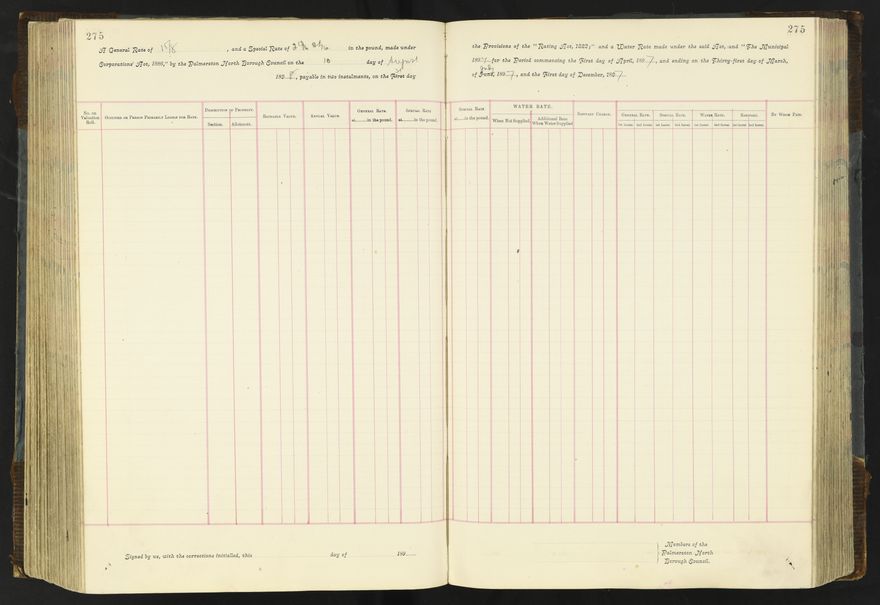 275
A General Rate of 1 5/8, and a Special Rate of in the pound, made under
Corporations' Act, 1886," by the Palmerston North Borough Council on the 10 day of August
189 , payable in two instalments, on the First day
No. on Valuation Roll.
Occupier or Person Primarily Liable for Rate.
Description of Property.
Section. Allotment.
Rateable Value.
Annual Value.
General Rate at in the pound.
Special Rate at in the pound.
Signed by us, with the corrections initialled, this day of 189
275
the Provisions of the "Rating Act, 1882;" and a Water Rate made under the said Act, and "The Municipal
189 for the Period commencing the First day of April, 1897, and ending on the Thirty-first day of March,
July
of June, 1897, and the First day of December, 1897
Special Rate at in the pound.
WATER RATE.
When Not Supplied. Additional Rate When Water Supplied
Sanitary Charge.
General Rate. Special Rate. Water Rate. Sanitary.
1st Instmt. 2nd Instmt. 1st Instmt. 2nd Instmt. 1st Instmt. 2nd Instmt. 1st Instmt. 2nd Instmt.
By Whom Paid.
Members of the
Palmerston North
Borough Council.